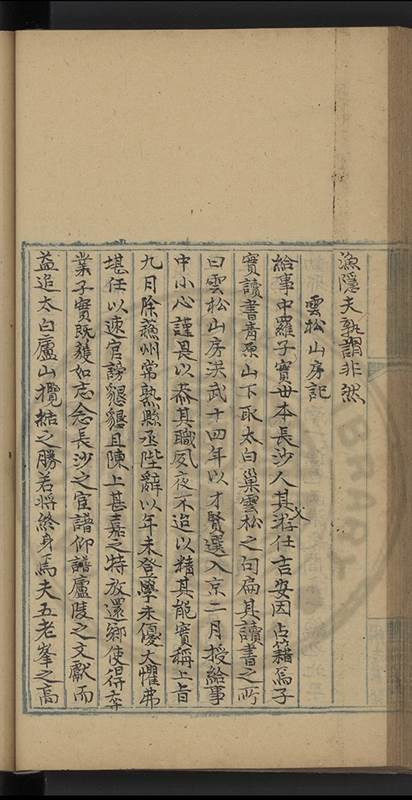 漁隱夫孰謂非然
雲松山房記
給事中羅子實世本長沙人其父游仕吉安因占籍焉子
實讀書青原山下取太白巢雲松之句扁其讀書之所
曰雲松山房洪武十四年以才賢選入京二月授給事
中小心謹畏以恭其職夙夜不迨以精其能實稱上旨
九月除蘇州常熟縣丞陛辭以年未登學未優大懼弗
堪任以速官謗懇懇且陳上甚嘉之特放還鄉使得卒
業子實既獲如志念長沙之宦譜仰譜廬陵之文獻而
益追太白廬山攬結之勝若將終身焉夫五老峯之高